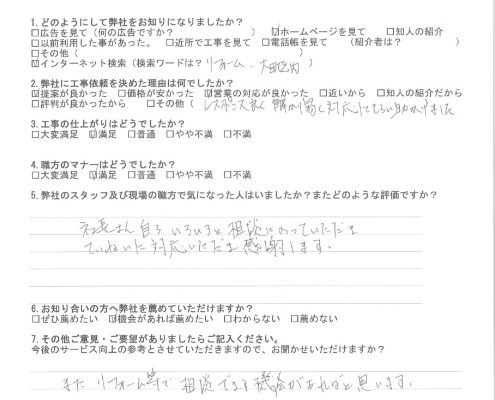 1. どのようにして弊社をお知りになりましたか？
□広告を見て（何の広告ですか？　　　　　　）☑ホームページを見て　□知人の紹介
□以前利用した事があった。　□近所で工事を見て　□電話帳を見て　（紹介者は？　　　　　　）
□その他（　　　　　　　　　　　　　　　　　）
☑インターネット検索（検索ワードは？リフォーム、大田区内）
2. 弊社に工事依頼を決めた理由は何でしたか？
☑提案が良かった　□価格が安かった　☑営業の対応が良かった　□近いから　□知人の紹介だから
□評判が良かったから　　□その他（レスポンス良く 対応してもらい助かりました
3. 工事の仕上がりはどうでしたか？
□大変満足　☑満足　□普通　□やや不満　□不満
4. 職方のマナーはどうでしたか？
□大変満足　☑満足　□普通　□やや不満　□不満
5. 弊社のスタッフ及び現場の職方で気になった人はいましたか？またどのような評価ですか？
社長さん自らいろいろと相談にのっていただき
ていねいに対応いただき感謝します。
6. お知り合いの方へ弊社を薦めていただけますか？
□ぜひ薦めたい　☑機会があれば薦めたい　□わからない　□薦めない
7. その他ご意見・ご要望がありましたらご記入ください。
今後のサービス向上の参考とさせていただきますので、お聞かせいただけますか？
また リフォーム等で 相談できる機会があればと思います。